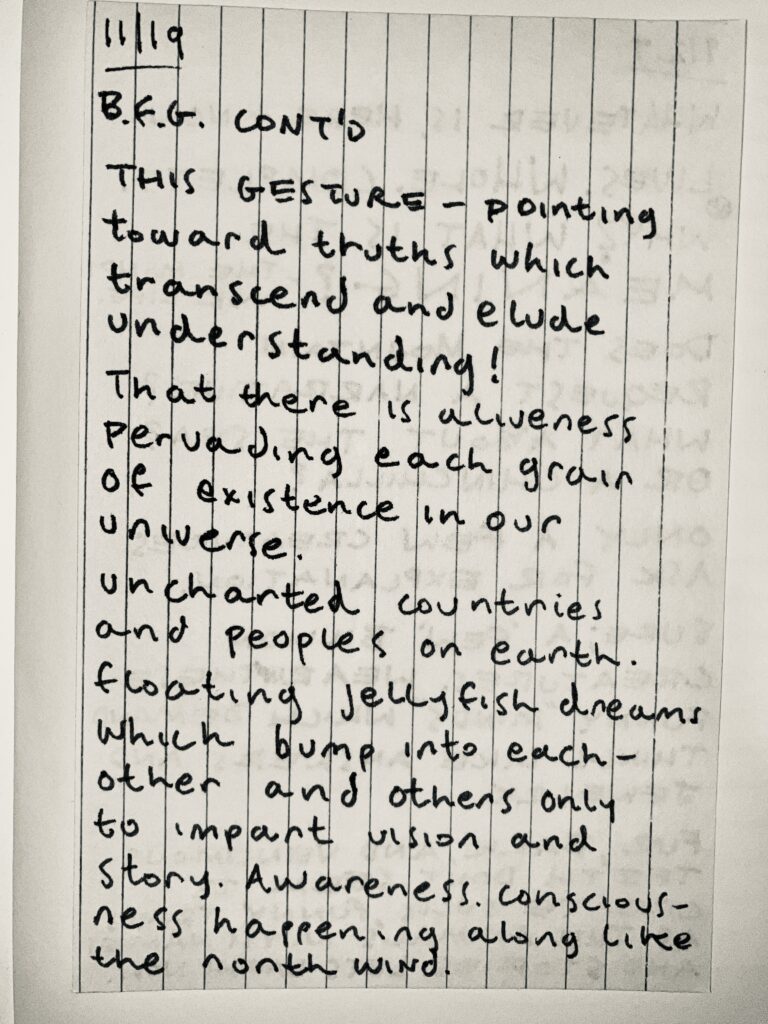 11/19
B.F.G. CONT'D
THIS GESTURE – pointing
toward truths which
transcend and elude
understanding!
That there is aliveness
pervading each grain
of existence in our
universe.
uncharted countries
and peoples on earth.
floating jellyfish dreams
which bump into each-
other and others only
to impart vision and
story. Awareness. conscious-
ness happening along like
the north wind.